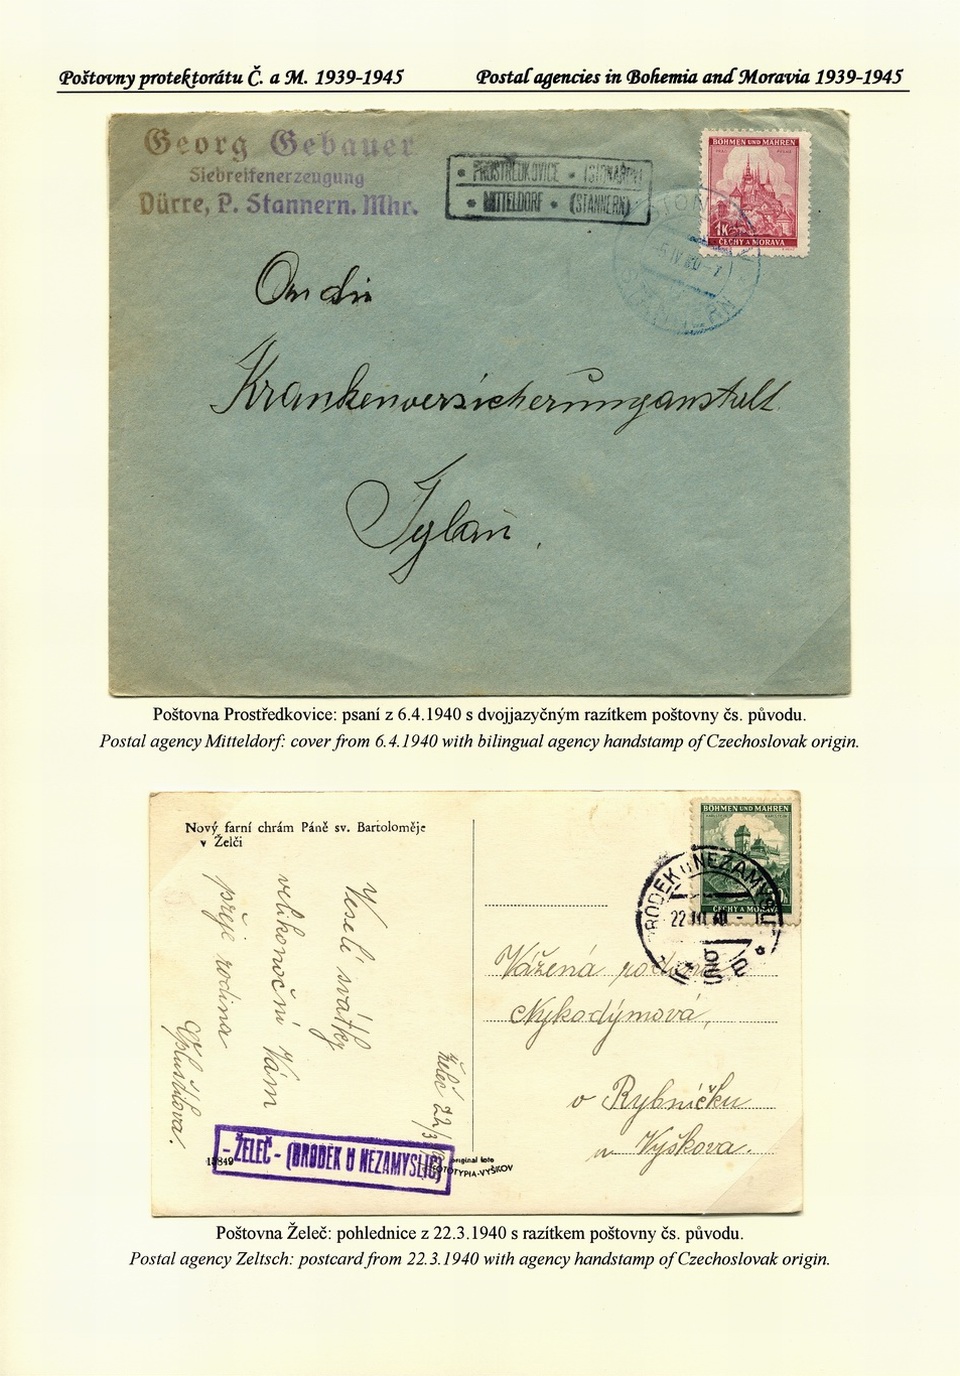 Poštovny protektorátu Č. a M. 1939-1945
Postal agencies in Bohemia and Moravia 1939-1945
Georg Gebauer
Siebreifenerzeugung
Dürre, P. Stannern. Mhr.
PROSTŘEDKOVICE (STONAŘOV)
MITTELDORF (STANNERN)
BÖHMEN UND MÄHREN
1K
ČECHY A MORAVA
-6.IV.40-7
STANNERN
An die
Krankenversicherungsanstalt
Iglau.
Poštovna Prostředkovice: psaní z 6.4.1940 s dvojjazyčným razítkem poštovny čs. původu.
Postal agency Mitteldorf: cover from 6.4.1940 with bilingual agency handstamp of Czechoslovak origin.
Nový farní chrám Páně sv. Bartoloměje
v Želči
BÖHMEN UND MÄHREN
ČECHY A MORAVA
BRODEK U NEZAMYSLIC
22.III.40
Želeč 22/3
Veselé svátky
velikonoční Vám
přeje rodina
Vážená rodina
Nykodýmová,
v Rybníčku
u Vyškova.
- ŽELEČ - (BRODEK U NEZAMYSLIC)
original foto
FOTOTYPIA-VYŠKOV
Poštovna Želeč: pohlednice z 22.3.1940 s razítkem poštovny čs. původu.
Postal agency Zeltsch: postcard from 22.3.1940 with agency handstamp of Czechoslovak origin.